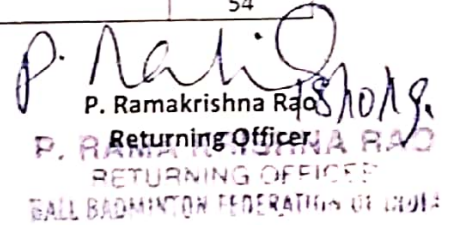 54
P. Ramakrishna Rao
Returning Officer
P. RAMAKRISHNA RAO
RETURNING OFFICER
BALL BADMINTON FEDERATION OF INDIA